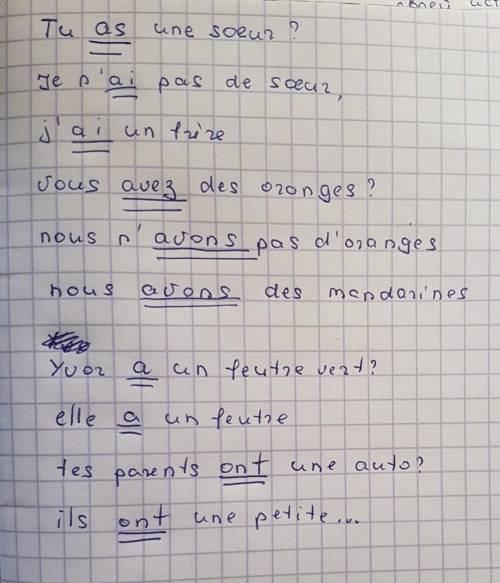 Tu as une soeur ?
Je n'ai pas de sœur,
j'ai un frire
vous avez des oranges ?
nous n'avons pas d'oranges
nous avons des mandarines
Yvor a un feutre vert?
elle a un feutre
tes parents ont une auto?
ils ont une petite...